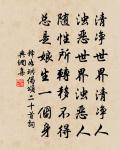 清淨世界清淨人
濁惡世界濁惡人
隨性所轉移不得
總是娘生一個身
釋如珙偈頌二十首詞
典網集